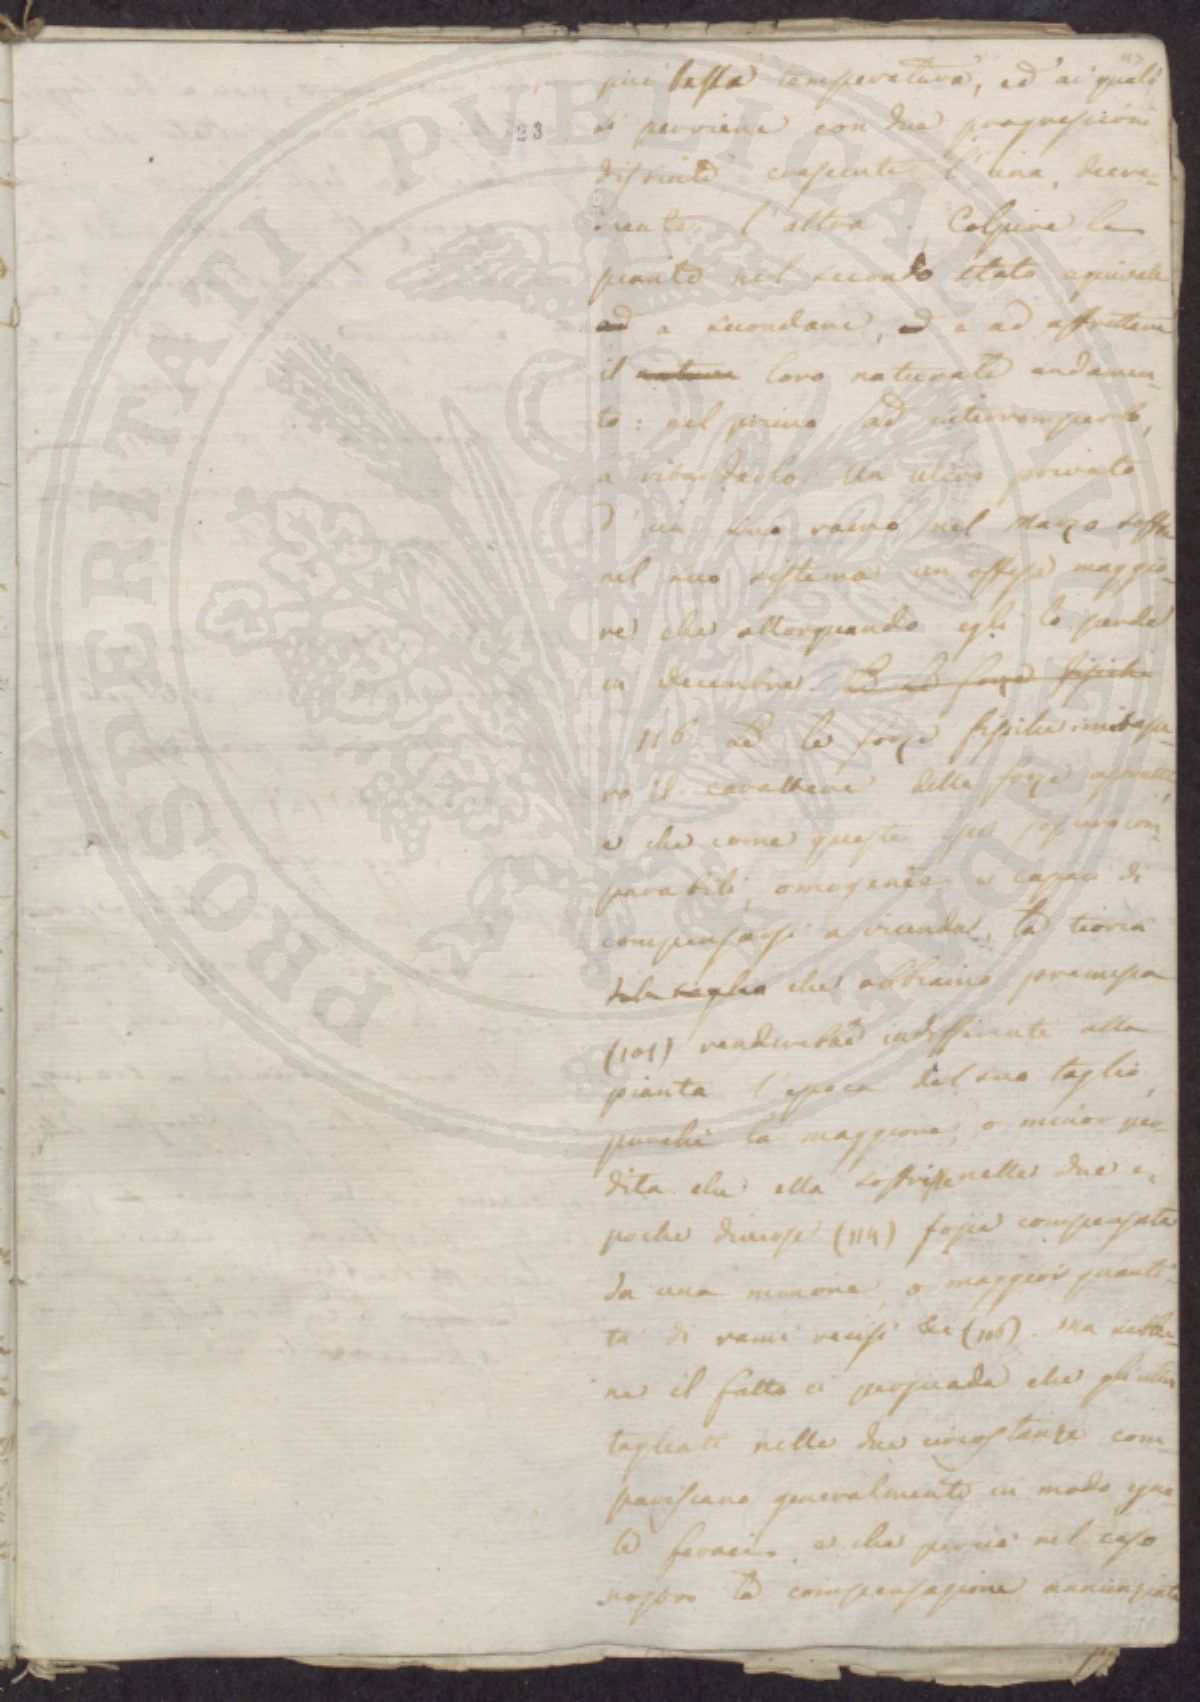 117
23
piú bassa temperatura, ed ai quali
si perviene con due progressioni
distinte, crescente l'una, decre-
scente l'altra. Colpire le
piante nel secondo stato equivale
ad a secondare, e ad affrettare
il loro naturale andamen-
to: nel primo ad interromperlo,
a ritardarlo. Un ulivo privato
d'un suo ramo nel Marzo soffre
nel suo sistema un offesa maggio-
re che allorquando egli lo perde
in decembre. Le forze fisiche
116 le forze fisiche
ro il carattere delle forze astratte,
e che come queste fossero com-
parabili, omogenee e capaci di
compensarsi a vicenda, la teoria
che abbiamo premessa
(101) renderebbe indifferente alla
pianta l'epoca del suo taglio,
purché la maggiore, o minor per-
dita che ella soffrisse nelle due e-
poche diverse (114) fosse compensata
da una minore, o maggior quanti-
tá di rami recisi (106). Ma sebbe-
ne il fatto ci persuada che gli ulivi
tagliati nelle due circostanze com-
pariscano generalmente in modo egua-
le feraci, e che perció nel caso
nostro la compensazione annunziata
PROSPERITATI PUBLICAE AUGENDAE